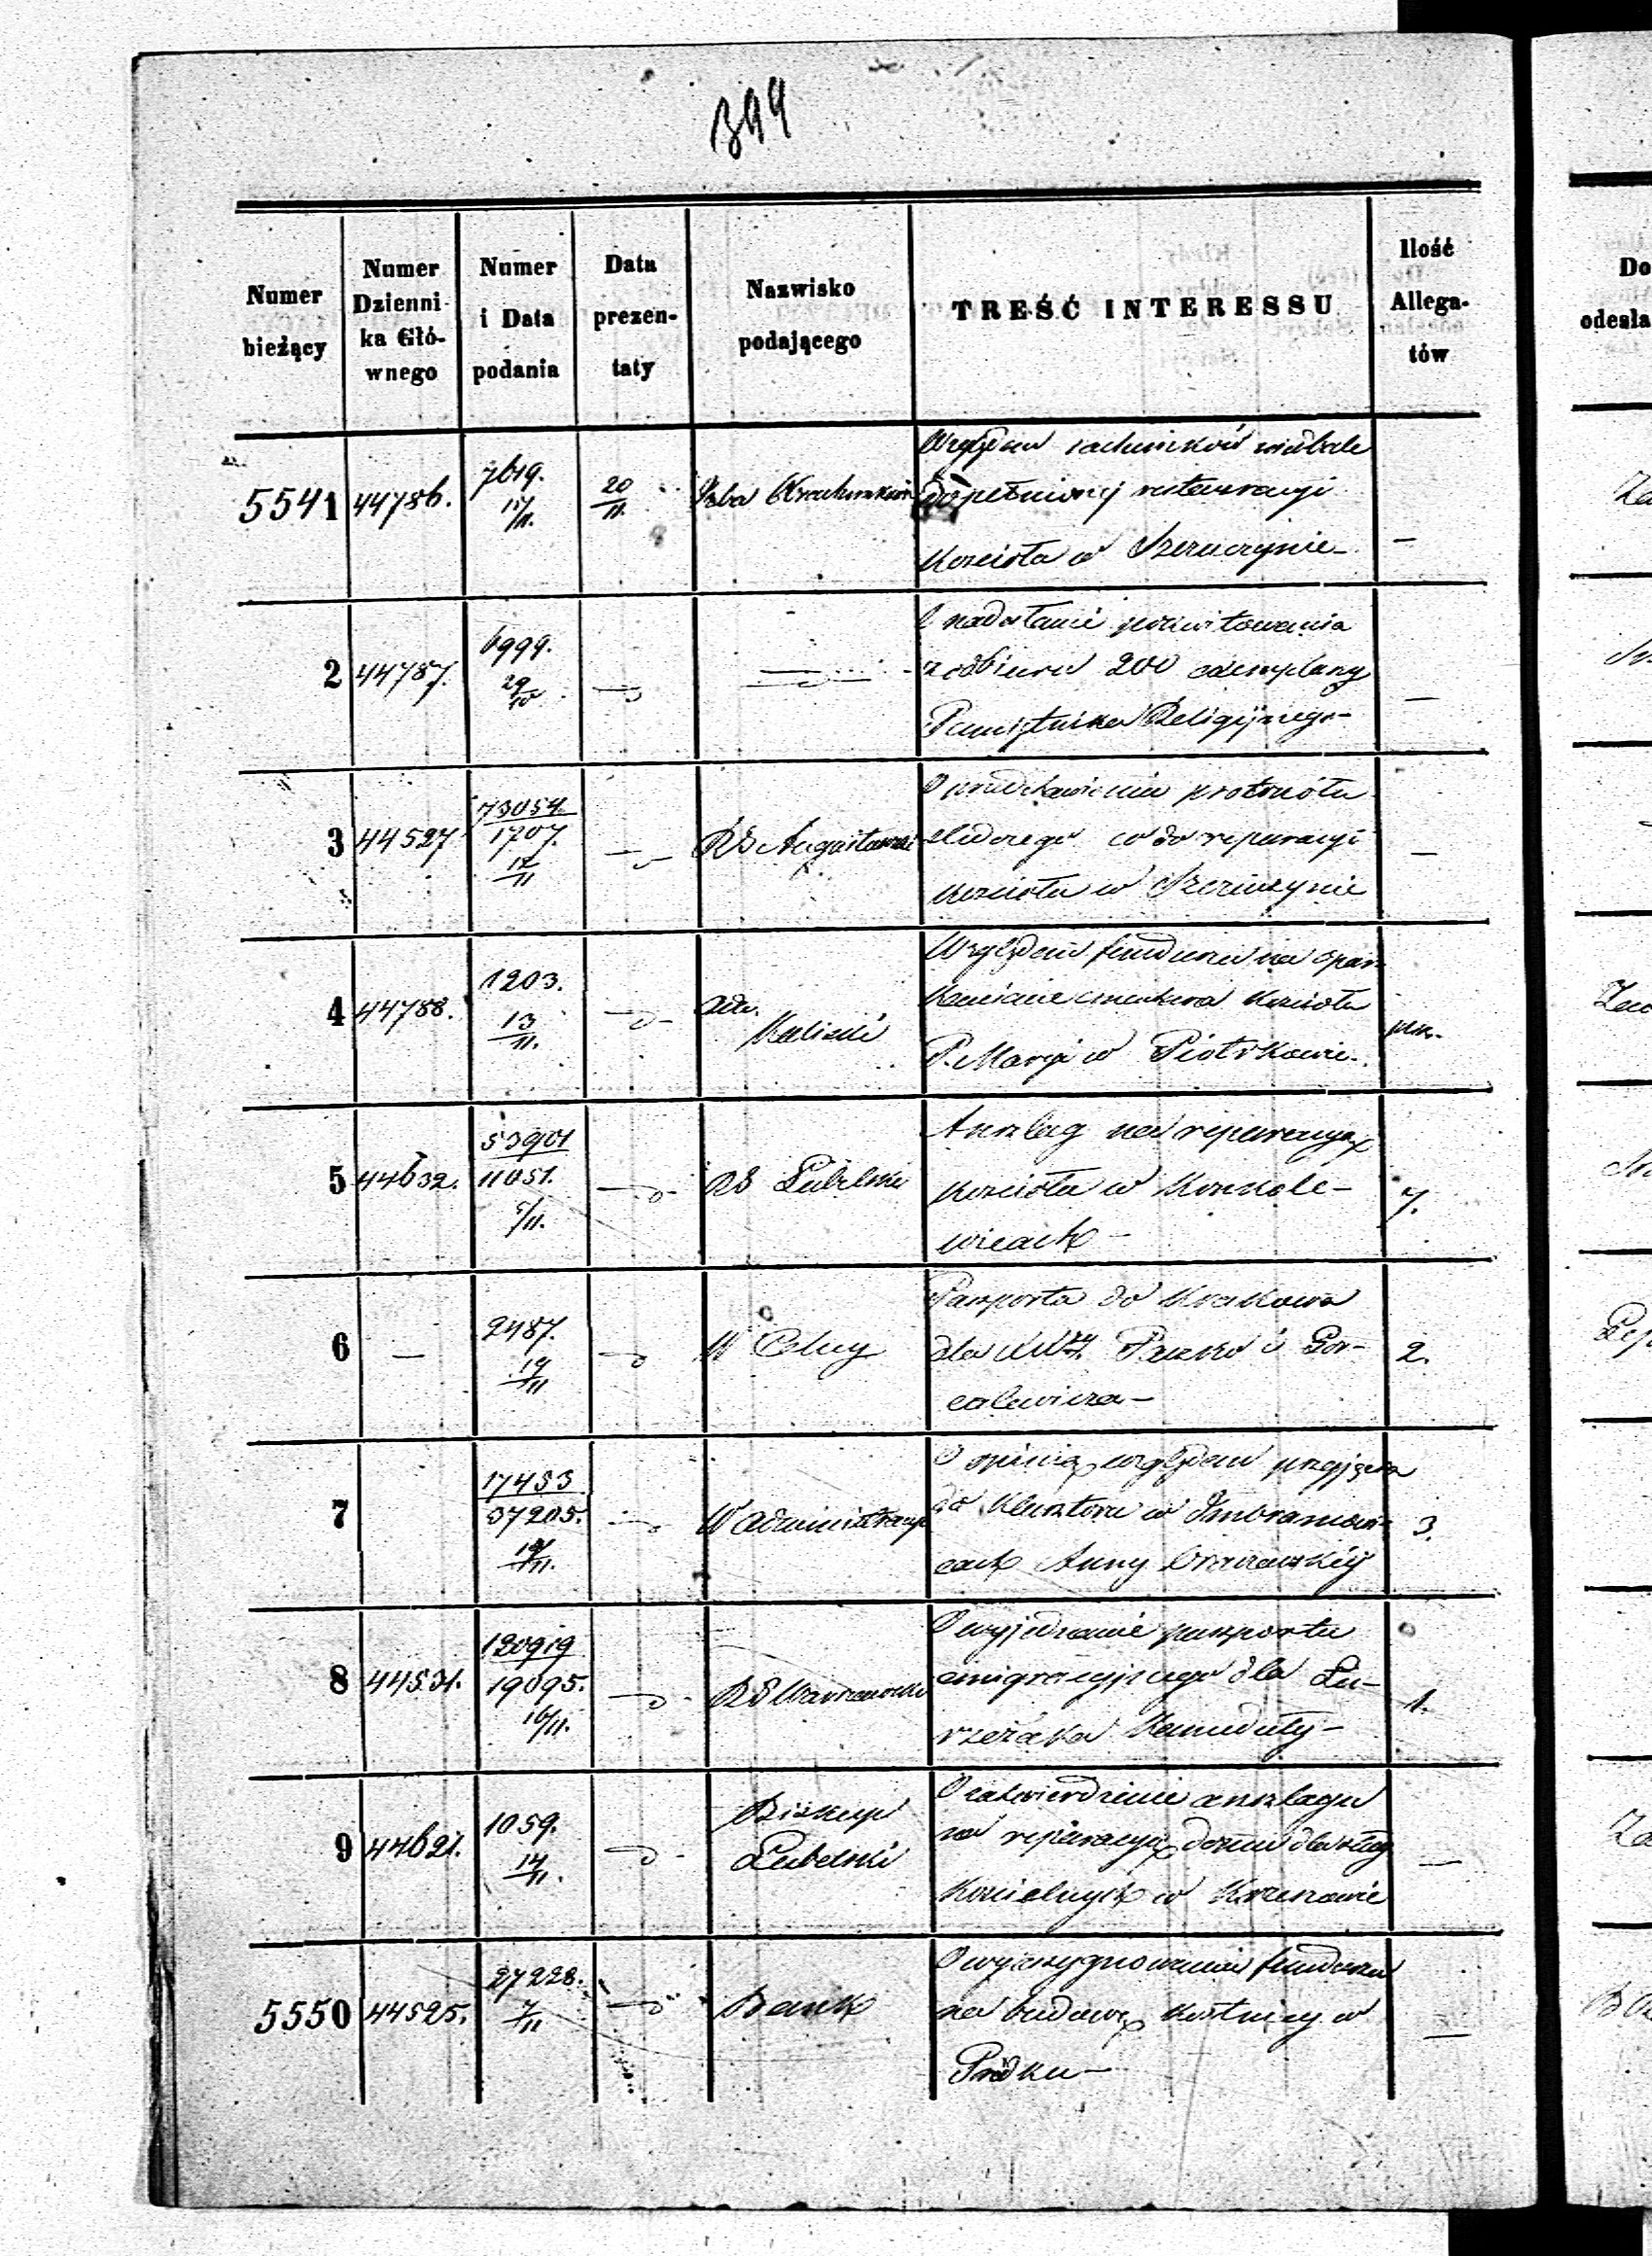 399
Numer bieżący
Numer Dzienni-ka Głó-wnego
Numer i Data podania
Data prezen-taty
Nazwisko podającego
TREŚĆ INTERESSU
Ilość Allega-tów
Do
odesła
5541 44786. 7619. 20/11 Izba Obrachunkowa Względem rachunków
dopełnionej restauracyi
Kościoła w Szczuczynie –
2 44787. 6999. 29/10 O nadesłanie pokwitowania
z odbioru 200 exemplarzy
Pamiętnika Religijnego –
3 44527 73054. 1707. 12/11 RG Augustowski O przedstawienie protokółu
co do reperacyi
Kościoła w Szczuczynie
4 44788. 1203. 13/11. Adm. Kaliski Względem funduszu na opar-
kanienie cmentarza Kościoła
P. Maryi w Piotrkowie.
5 44632. 53901 11051. 5/11. RG Lubelski Anszlag na reperacyą
Kościoła w Konkole-
wicach – 7.
6 — 2487. 19/11 W Celny Paszporta do Krakowa
dla XX i Gor-
calewicza – 2.
7 17453 37205. 19/11. W Administracyi O opinią względem przyjęcia
do Klasztoru w Imbramowi-
cach Anny 3.
8 44531. 120919 19095. 16/11. RG Warszawski O wyjednanie paszportu
emigracyjnego dla Ła-
Kameduły – 1.
9 44621. 1059. 14/11. Biskup Lubelski O zatwierdzenie anszlagu
na reperacyą domu dla sług
Kościelnych w
5550 44525. 27228. 7/11 Bank O wyasygnowanie funduszu
na budowę kostnicy w